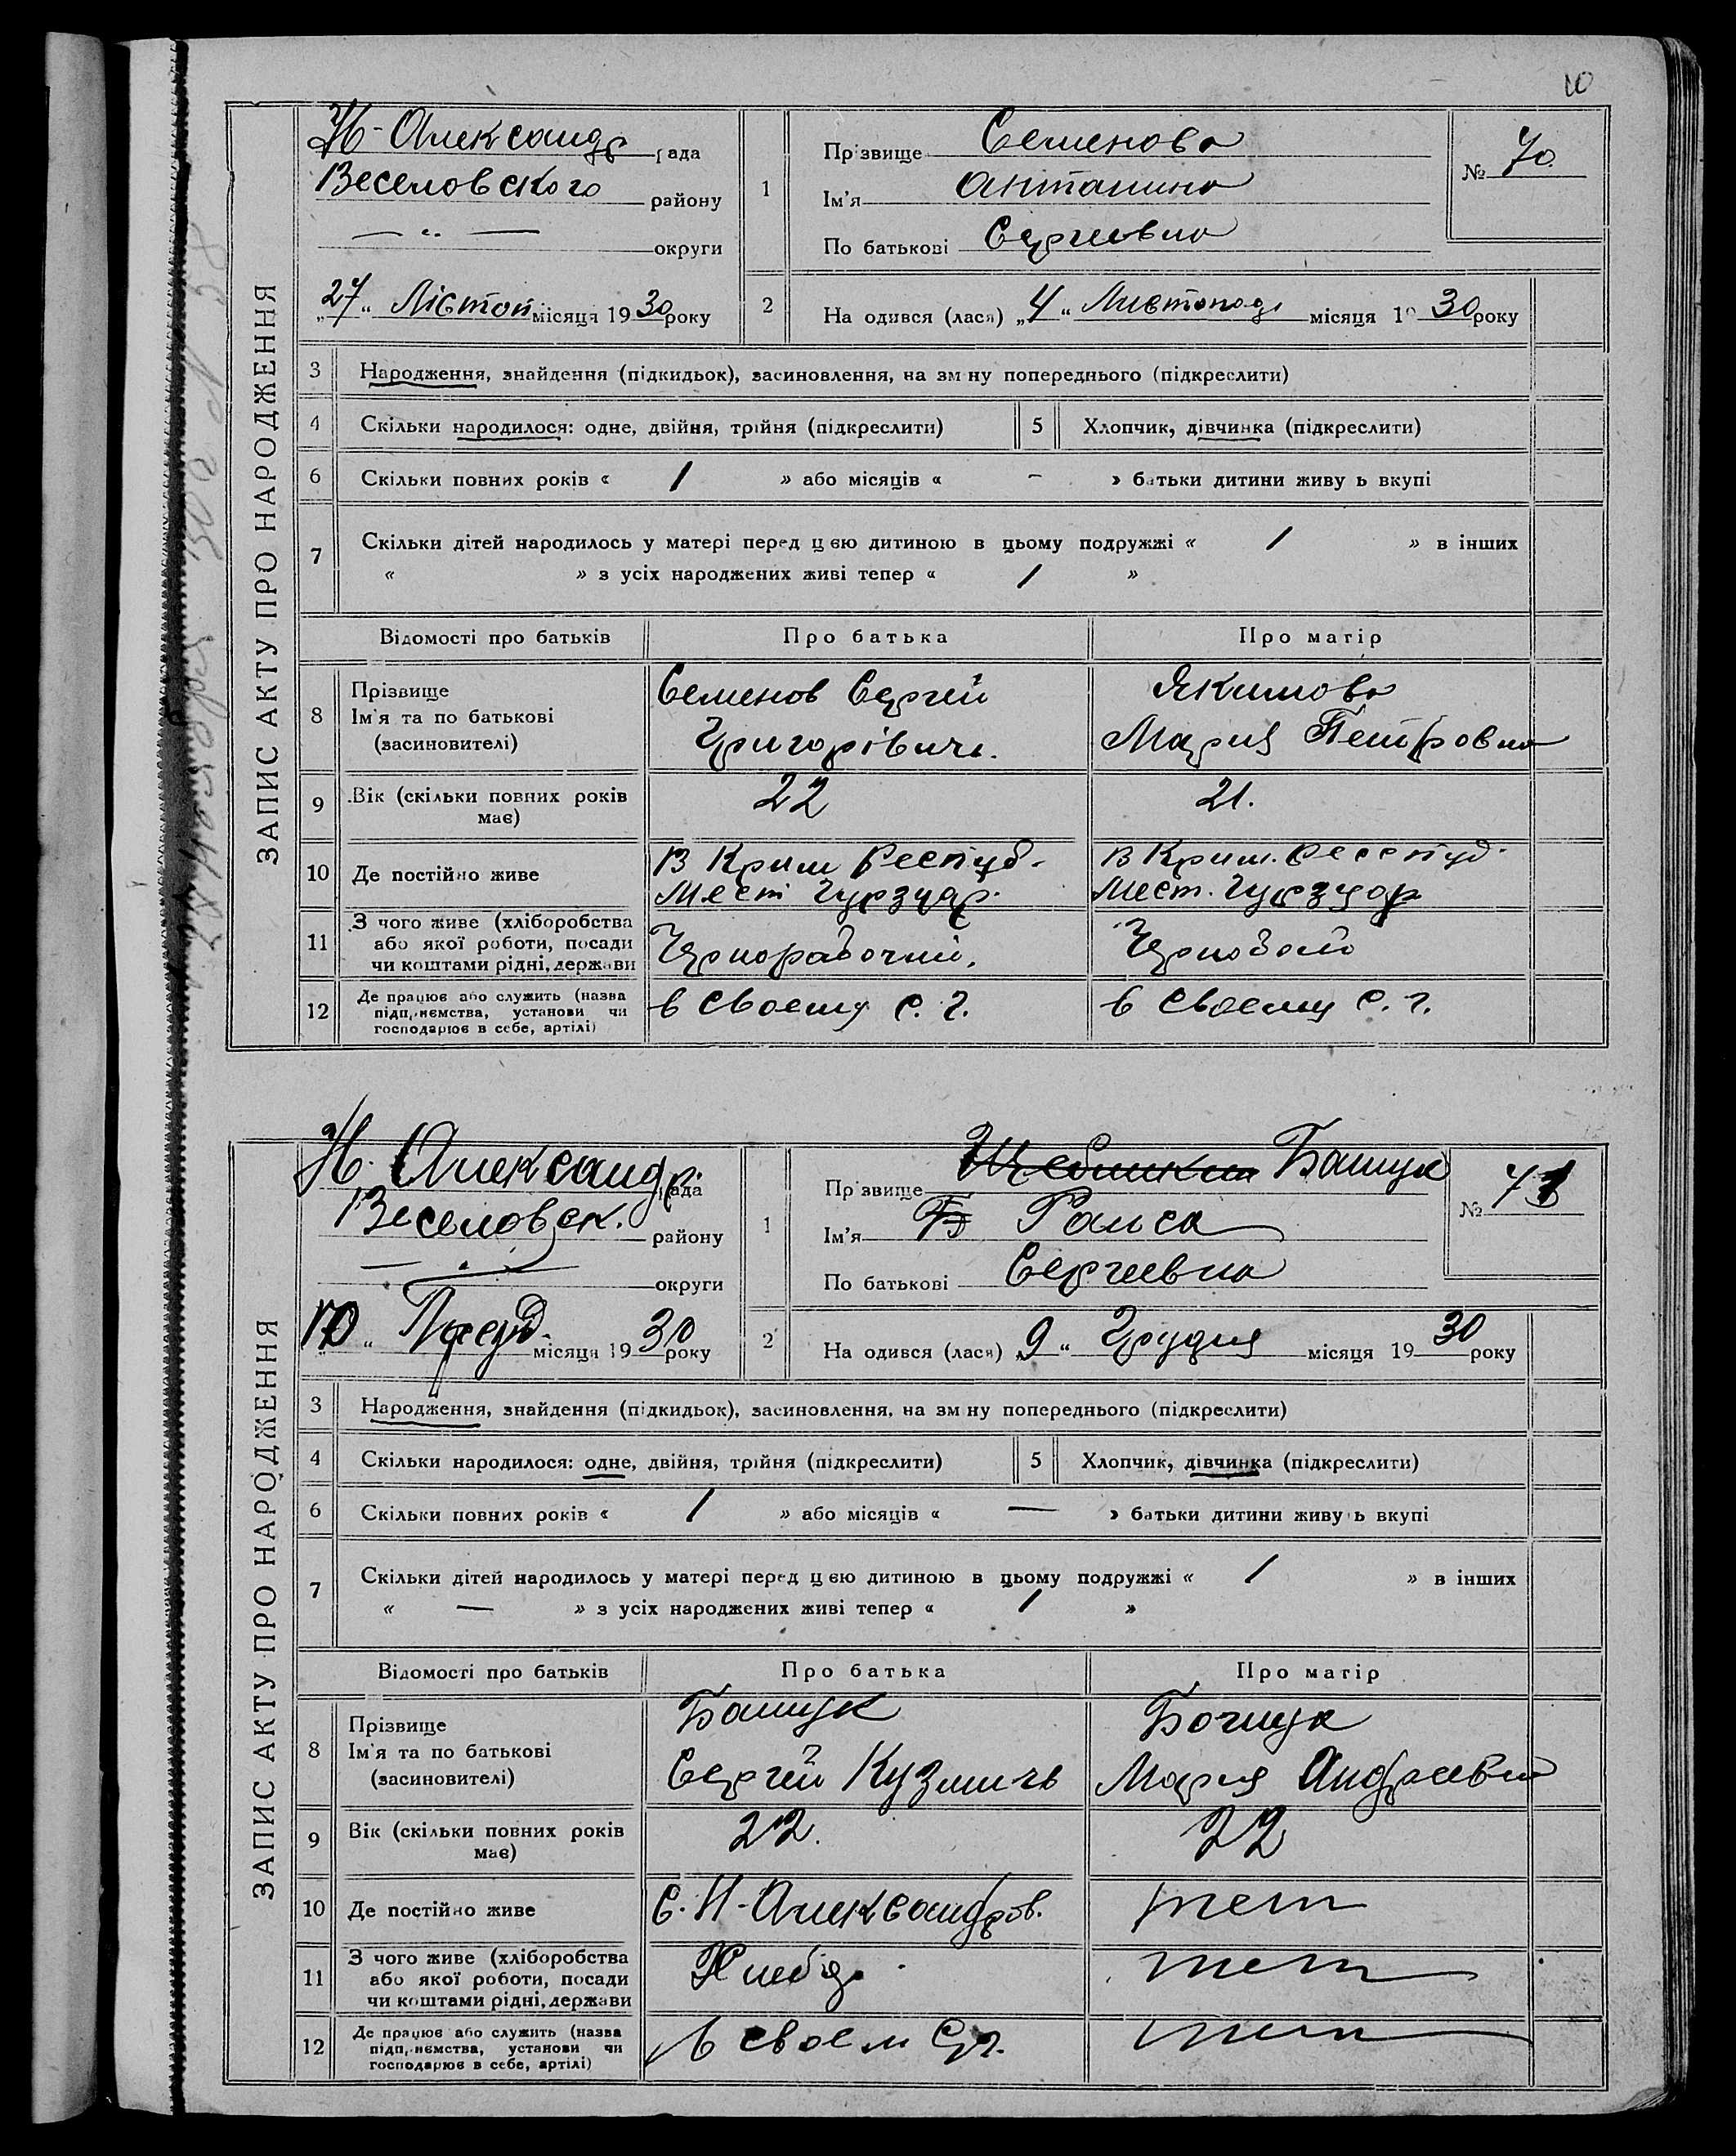 10
ЗАПИС АКТУ ПРО НАРОДЖЕННЯ
Н-Александр рада
Веселовского району
— „ — округи
„27“ Лістоп місяця 1930 року
1
Прізвище Семенова
Ім'я Антанина
По батькові Сергиевна
№ 70
2
На одився (лася) „4“ Листопад місяця 1930 року
3 Народження, знайдення (підкидьок), засиновлення, на зм ну попереднього (підкреслити)
4 Скільки народилося: одне, двійня, трійня (підкреслити)
5 Хлопчик, дівчинка (підкреслити)
6 Скільки повних років « 1 » або місяців « - » батьки дитини живу ь вкупі
7 Скільки дітей народилось у матері перед цею дитиною в цьому подружжі « 1 » в інших
« » з усіх народжених живі тепер « 1 »
Відомості про батьків Про батька Про матір
8 Прізвище
Ім'я та по батькові
(засиновителі)
Семенов Сергей
Григорівичь.
Якимова
Мария Петровна
9 Вік (скільки повних років
має)
22
21.
10 Де постійно живе
В Крим Респуб.
Мест Гурзуф.
В Крим.
Мест. Гурзуф
11 З чого живе (хліборобства
або якої роботи, посади
чи коштами рідні, держави
Чернорабочий.
12 Де працює або служить (назва
підприємства, установи чи
господарює в себе, артілі)
в Своему С. Г.
в Своему С. Г.
ЗАПИС АКТУ ПРО НАРОДЖЕННЯ
Н. Александр. рада
Веселовск. району
— „ — округи
місяця 1930 року
1
Прізвище Башук
Ім'я Б Раиса
По батькові Сергиевна
№ 71
2
На одився (лася) „9“ Грудня місяця 1930 року
3 Народження, знайдення (підкидьок), засиновлення, на зм ну попереднього (підкреслити)
4 Скільки народилося: одне, двійня, трійня (підкреслити)
5 Хлопчик, дівчинка (підкреслити)
6 Скільки повних років « 1 » або місяців « — » батьки дитини живу ь вкупі
7 Скільки дітей народилось у матері перед цею дитиною в цьому подружжі « 1 » в інших
« — » з усіх народжених живі тепер « 1 »
Відомості про батьків Про батька Про матір
8 Прізвище
Ім'я та по батькові
(засиновителі)
Башук
Сергей Кузмичь
Мария Андреевна
9 Вік (скільки повних років
має)
22.
22
10 Де постійно живе
С. Н-Александров.
тет
11 З чого живе (хліборобства
або якої роботи, посади
чи коштами рідні, держави
тет
12 Де працює або служить (назва
підприємства, установи чи
господарює в себе, артілі)
В своем
тет